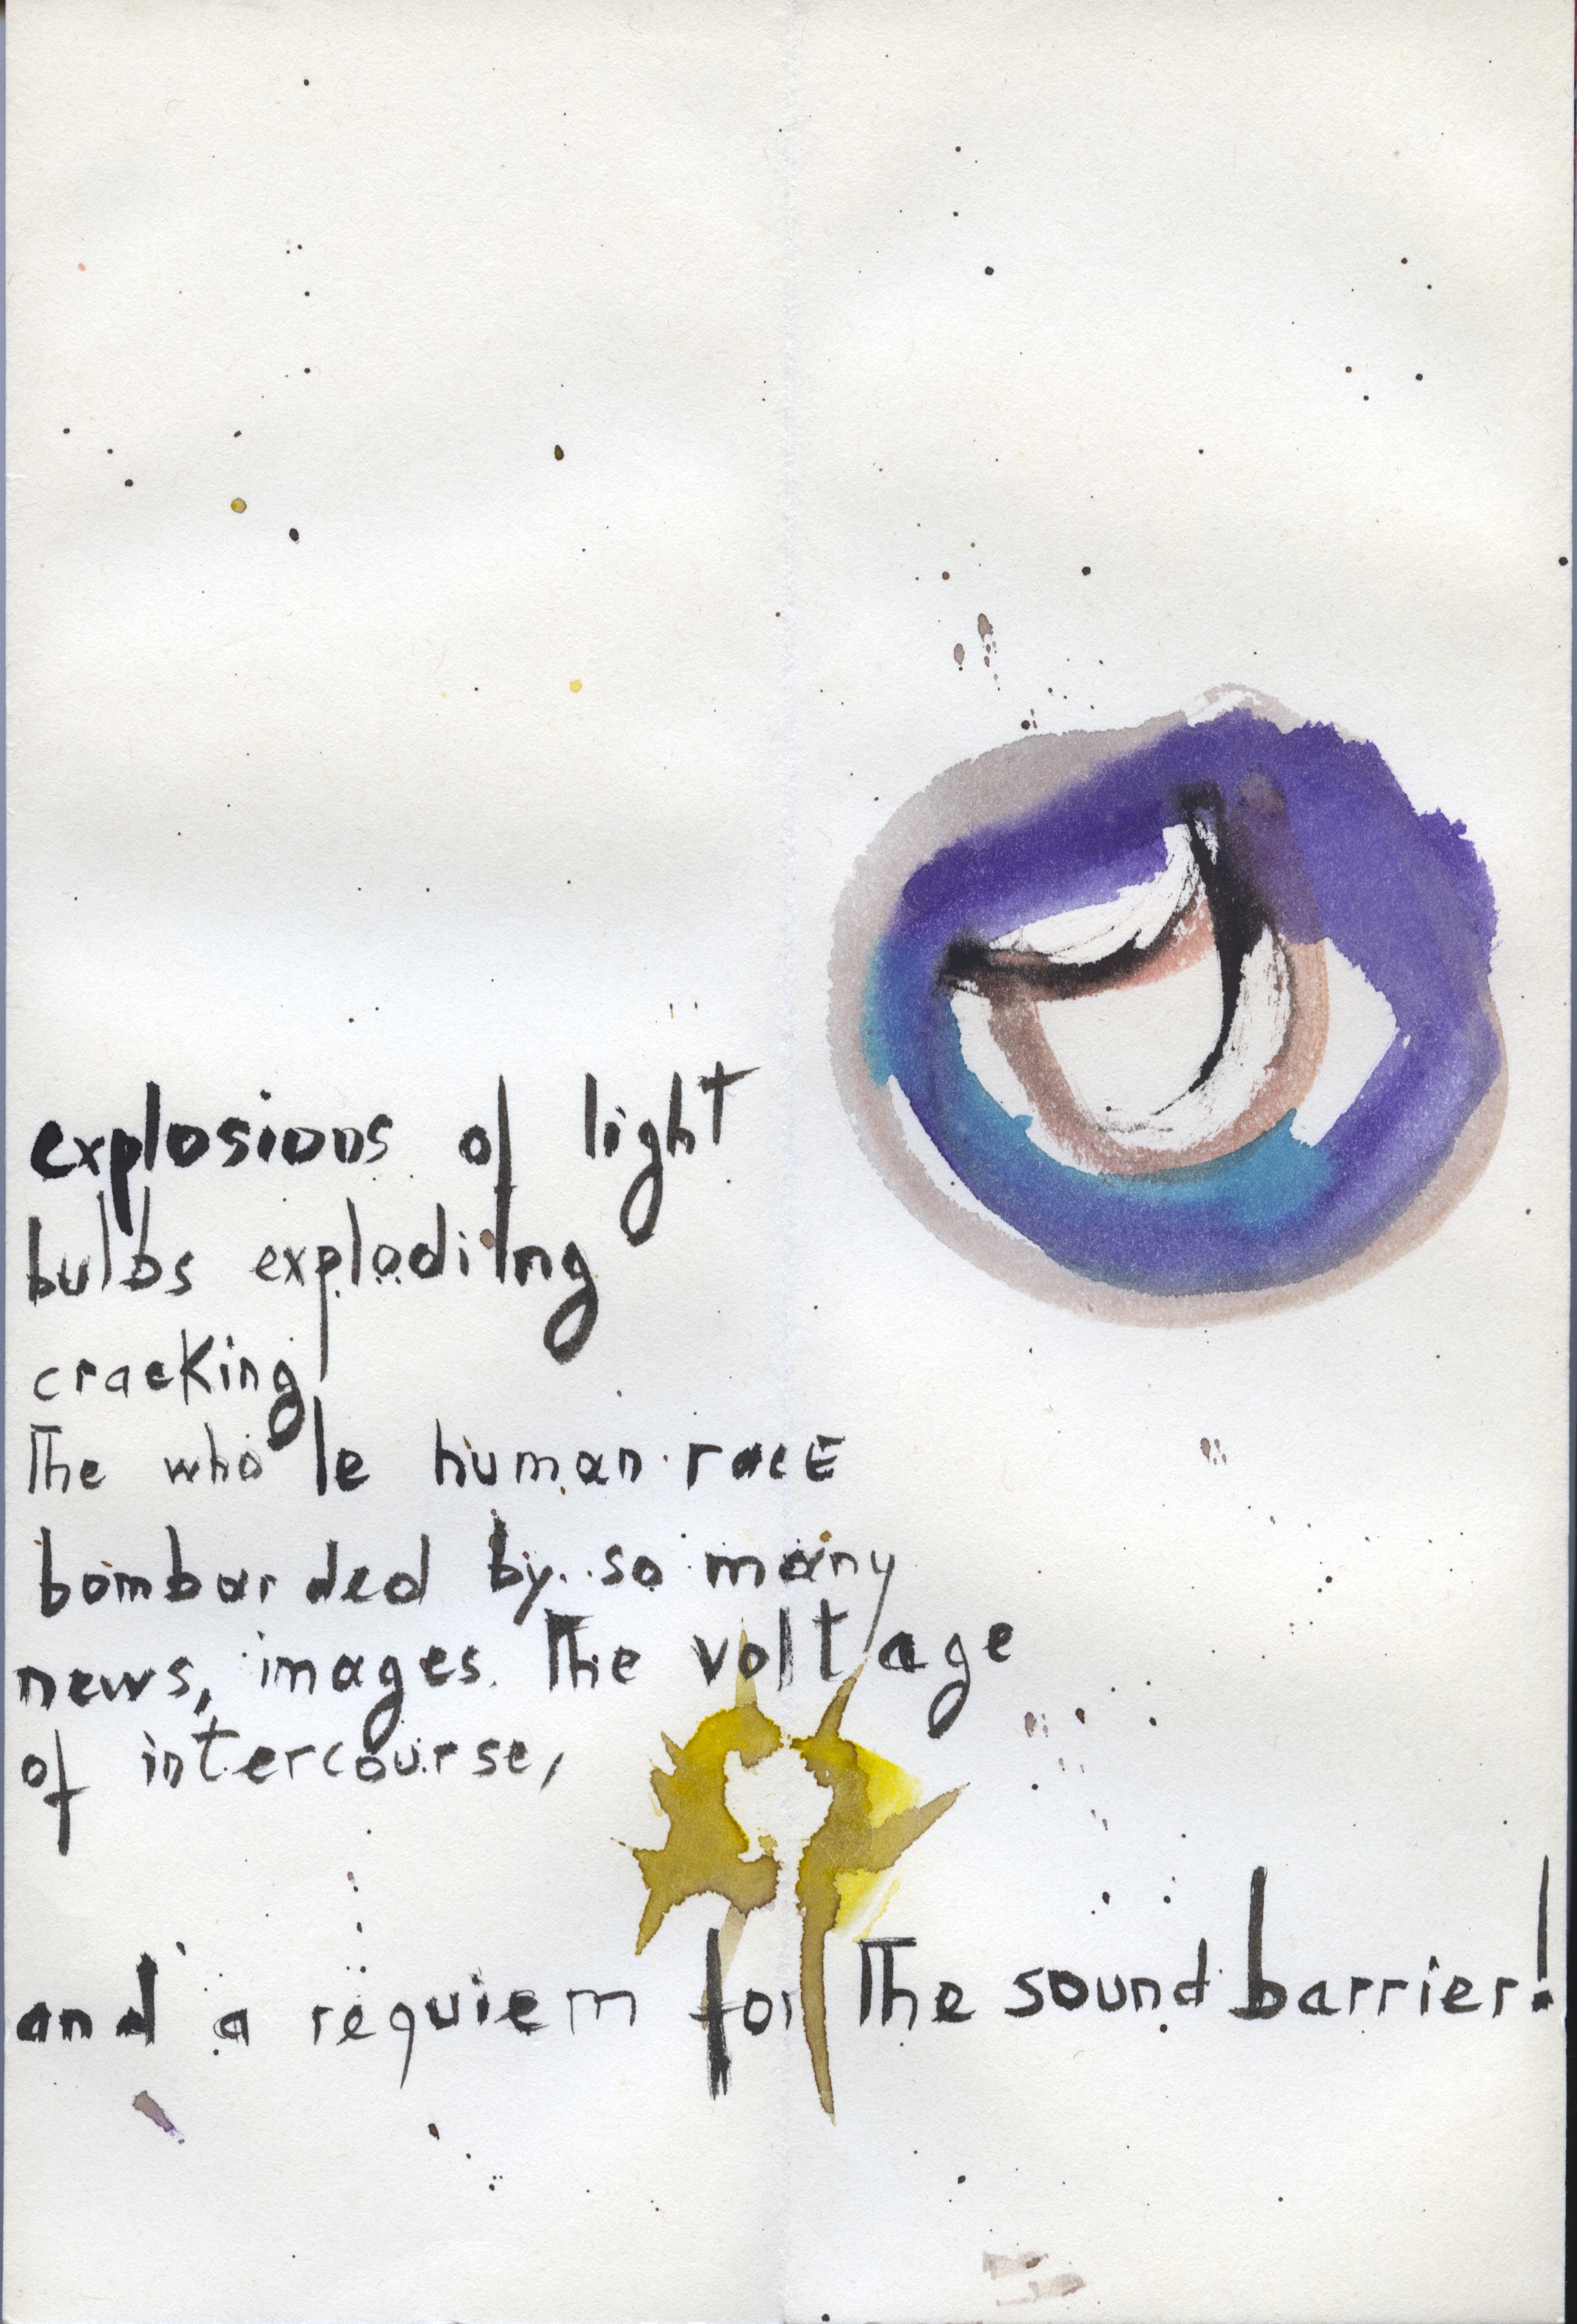 explosions of light
bulbs exploding
cracking
The whole human racE
bombarded by so many
news, images. The voltage
of intercourse,
and a requiem for The sound barrier!